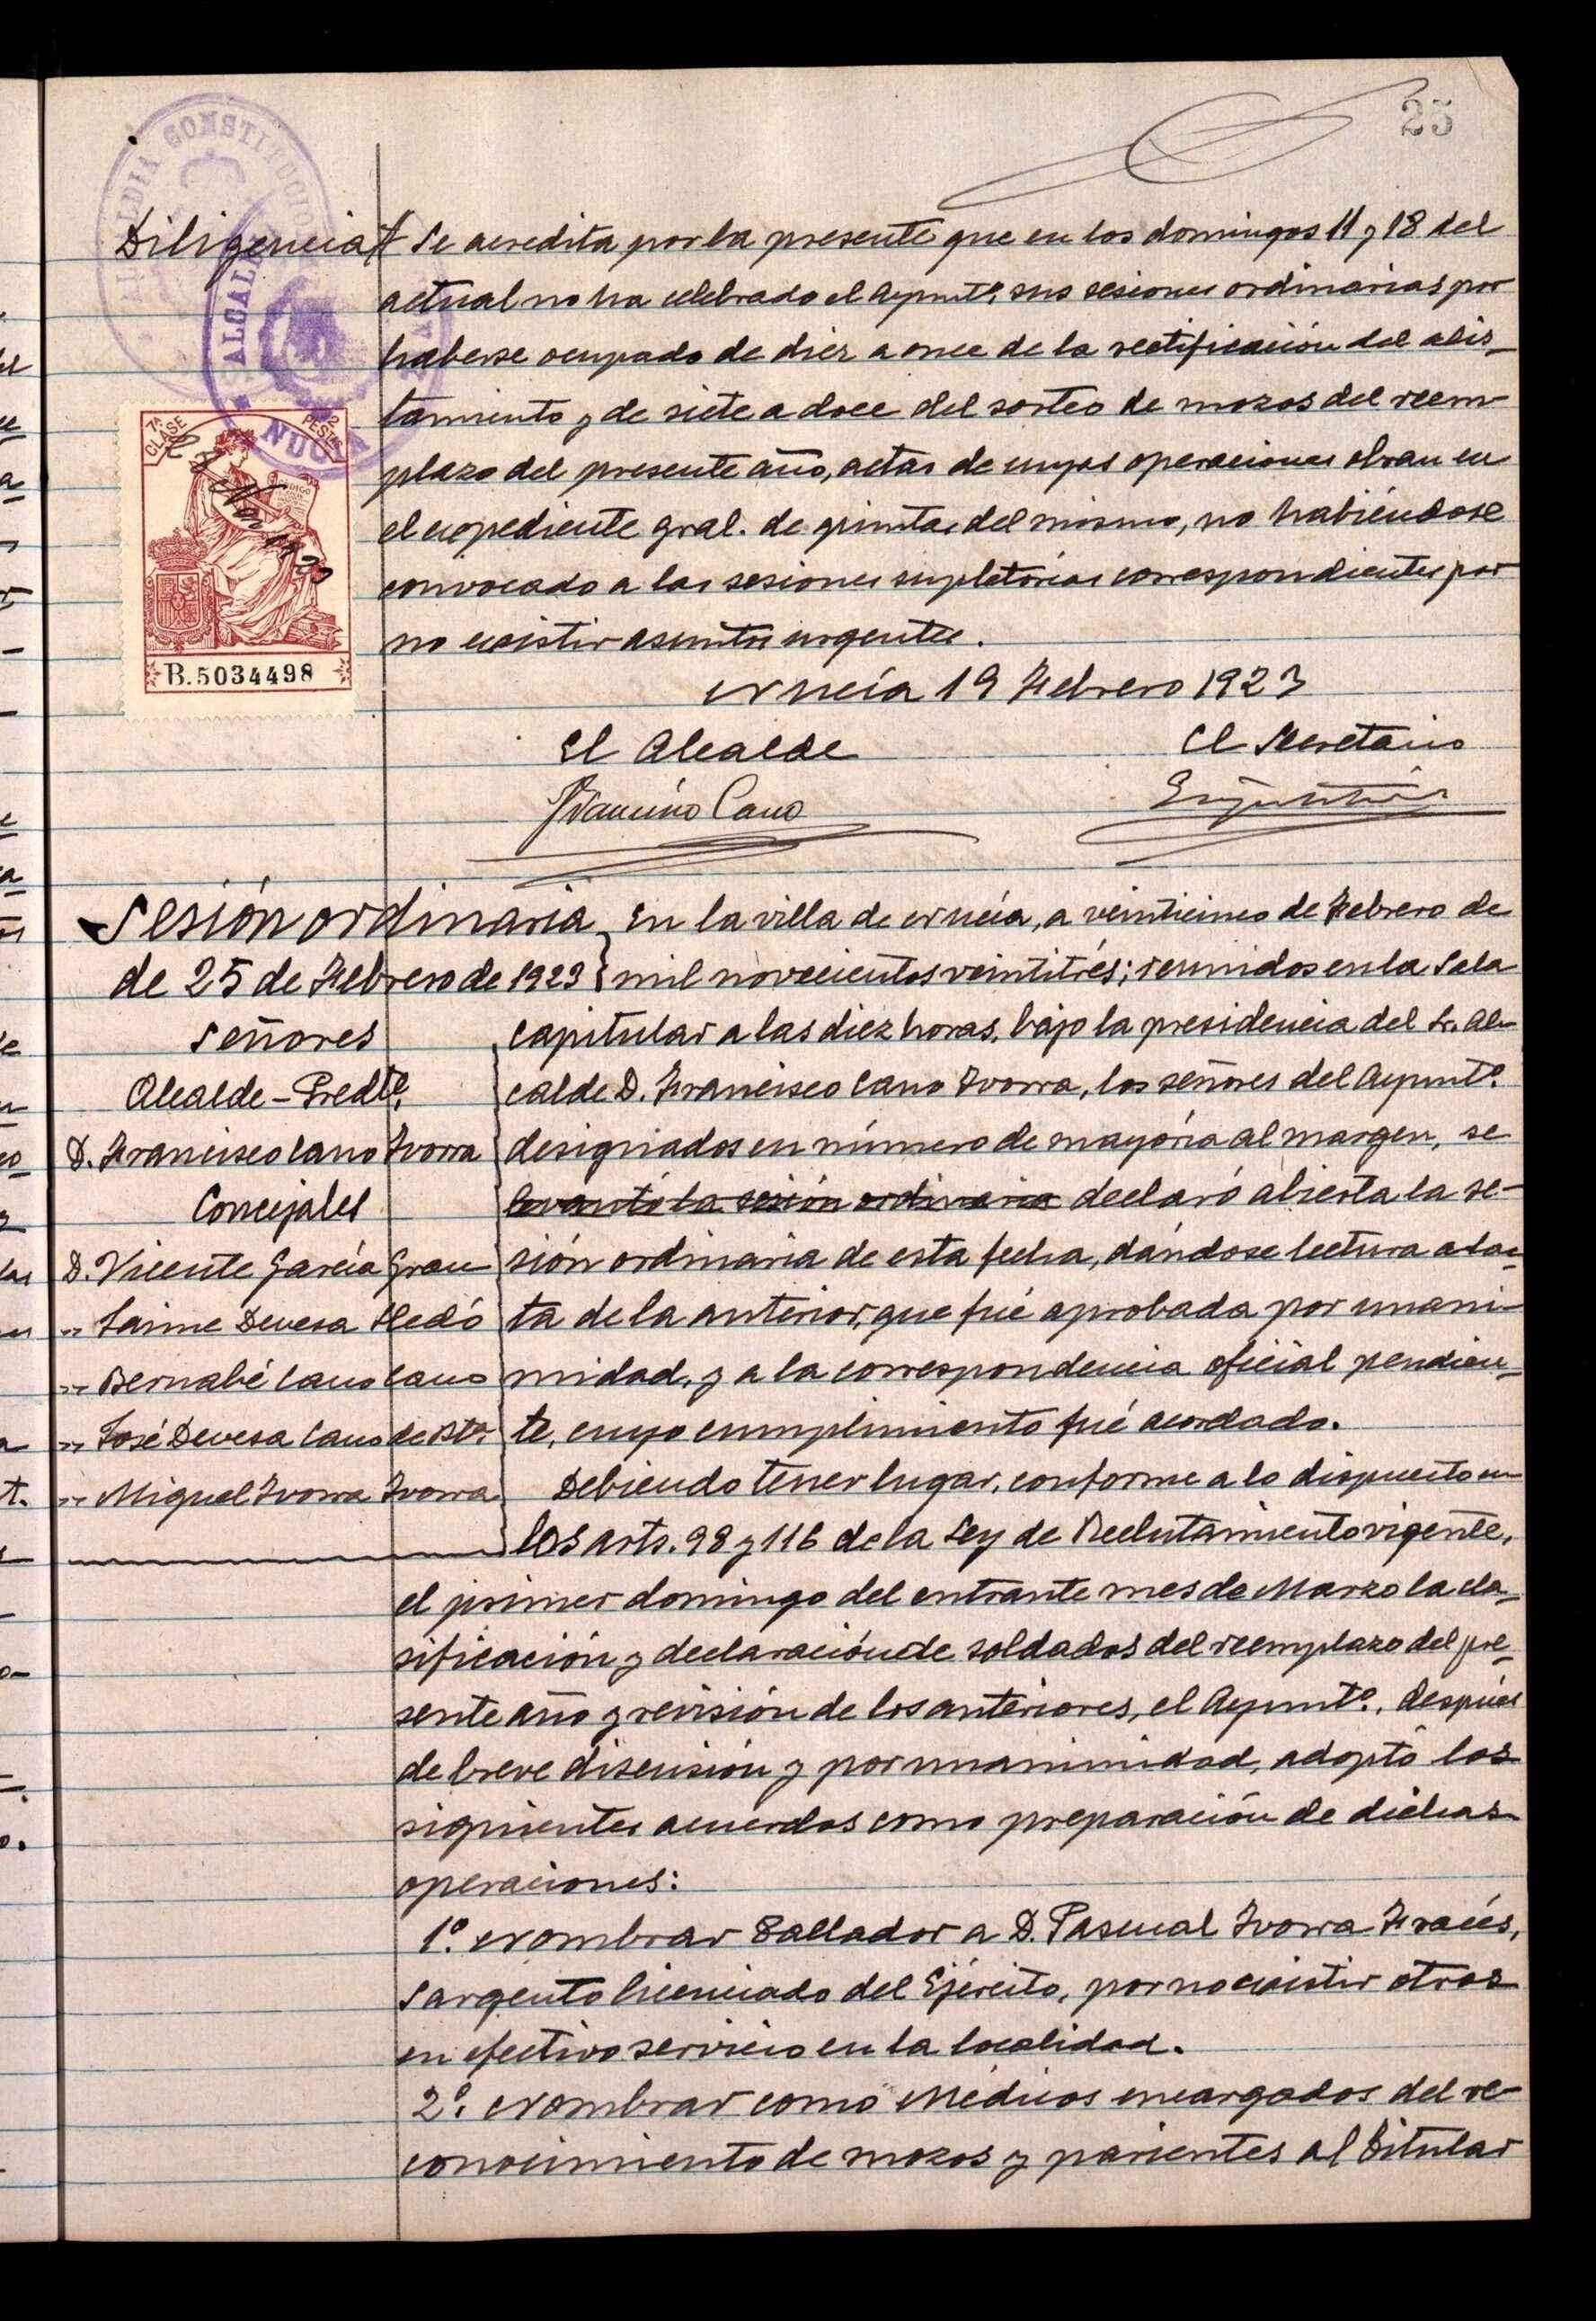 25
ALCALDIA CONSTITUCIONAL
ALCALDIA
NUCIA
Diligencia // Se acredita por la presente que en los domingos 11 y 18 del
actual no ha celebrado el Ayuntº. sus sesiones ordinarias por
haberse ocupado de diez a once de la rectificación del alis-
tamiento y de siete a doce del sorteo de mozos del reem-
plazo del presente año, actas de cuyas operaciones obran en
el expediente gral. de quintas del mismo, no habiéndose
convocado a las sesiones supletorias correspondientes por
no existir asuntos urgentes.
7ª CLASE
2 PESTAS
B.5034498
Nucía 19 Febrero 1923
El Alcalde
El Secretario
Francisco Cano
Sesión ordinaria
de 25 de Febrero de 1923
Señores
Alcalde-Predte.
D. Francisco Cano Ivorra
Concejales
D. Vicente García Grau
" Jaime Devesa Lledó
" Bernabé Cano Cano
" José Devesa Cano de Btª.
" Miguel Ivorra Ivorra
En la villa de Nucía, a veinticinco de Febrero de
mil novecientos veintitrés; reunidos en la Sala
capitular a las diez horas, bajo la presidencia del Sr. Al-
calde D. Francisco Cano Ivorra, los señores del Ayuntº.
designados en número de mayoría al margen, se
levantó la sesión ordinaria declaró abierta la se-
sión ordinaria de esta fecha, dándose lectura al ac-
ta de la anterior, que fué aprobada por unani-
midad, y a la correspondencia oficial pendien-
te, cuyo cumplimiento fué acordado.
Debiendo tener lugar, conforme a lo dispuesto en
los arts. 98 y 116 de la Ley de Reclutamiento vigente,
el primer domingo del entrante mes de Marzo la cla-
sificación y declaración de soldados del reemplazo del pre-
sente año y revisión de los anteriores, el Ayuntº. después
de breve discusión y por unanimidad, adoptó los
siguientes acuerdos como preparación de dichas
operaciones:
1º. Nombrar Tallador a D. Pascual Ivorra Francés,
Sargento licenciado del Ejército, por no existir otros
en efectivo servicio en la localidad.
2º. Nombrar como Médicos encargados del re-
conocimiento de mozos y parientes al Titular